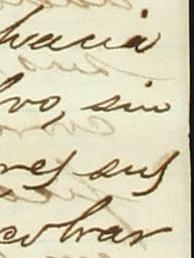 hacia
vo, sin
res sus
cobrar